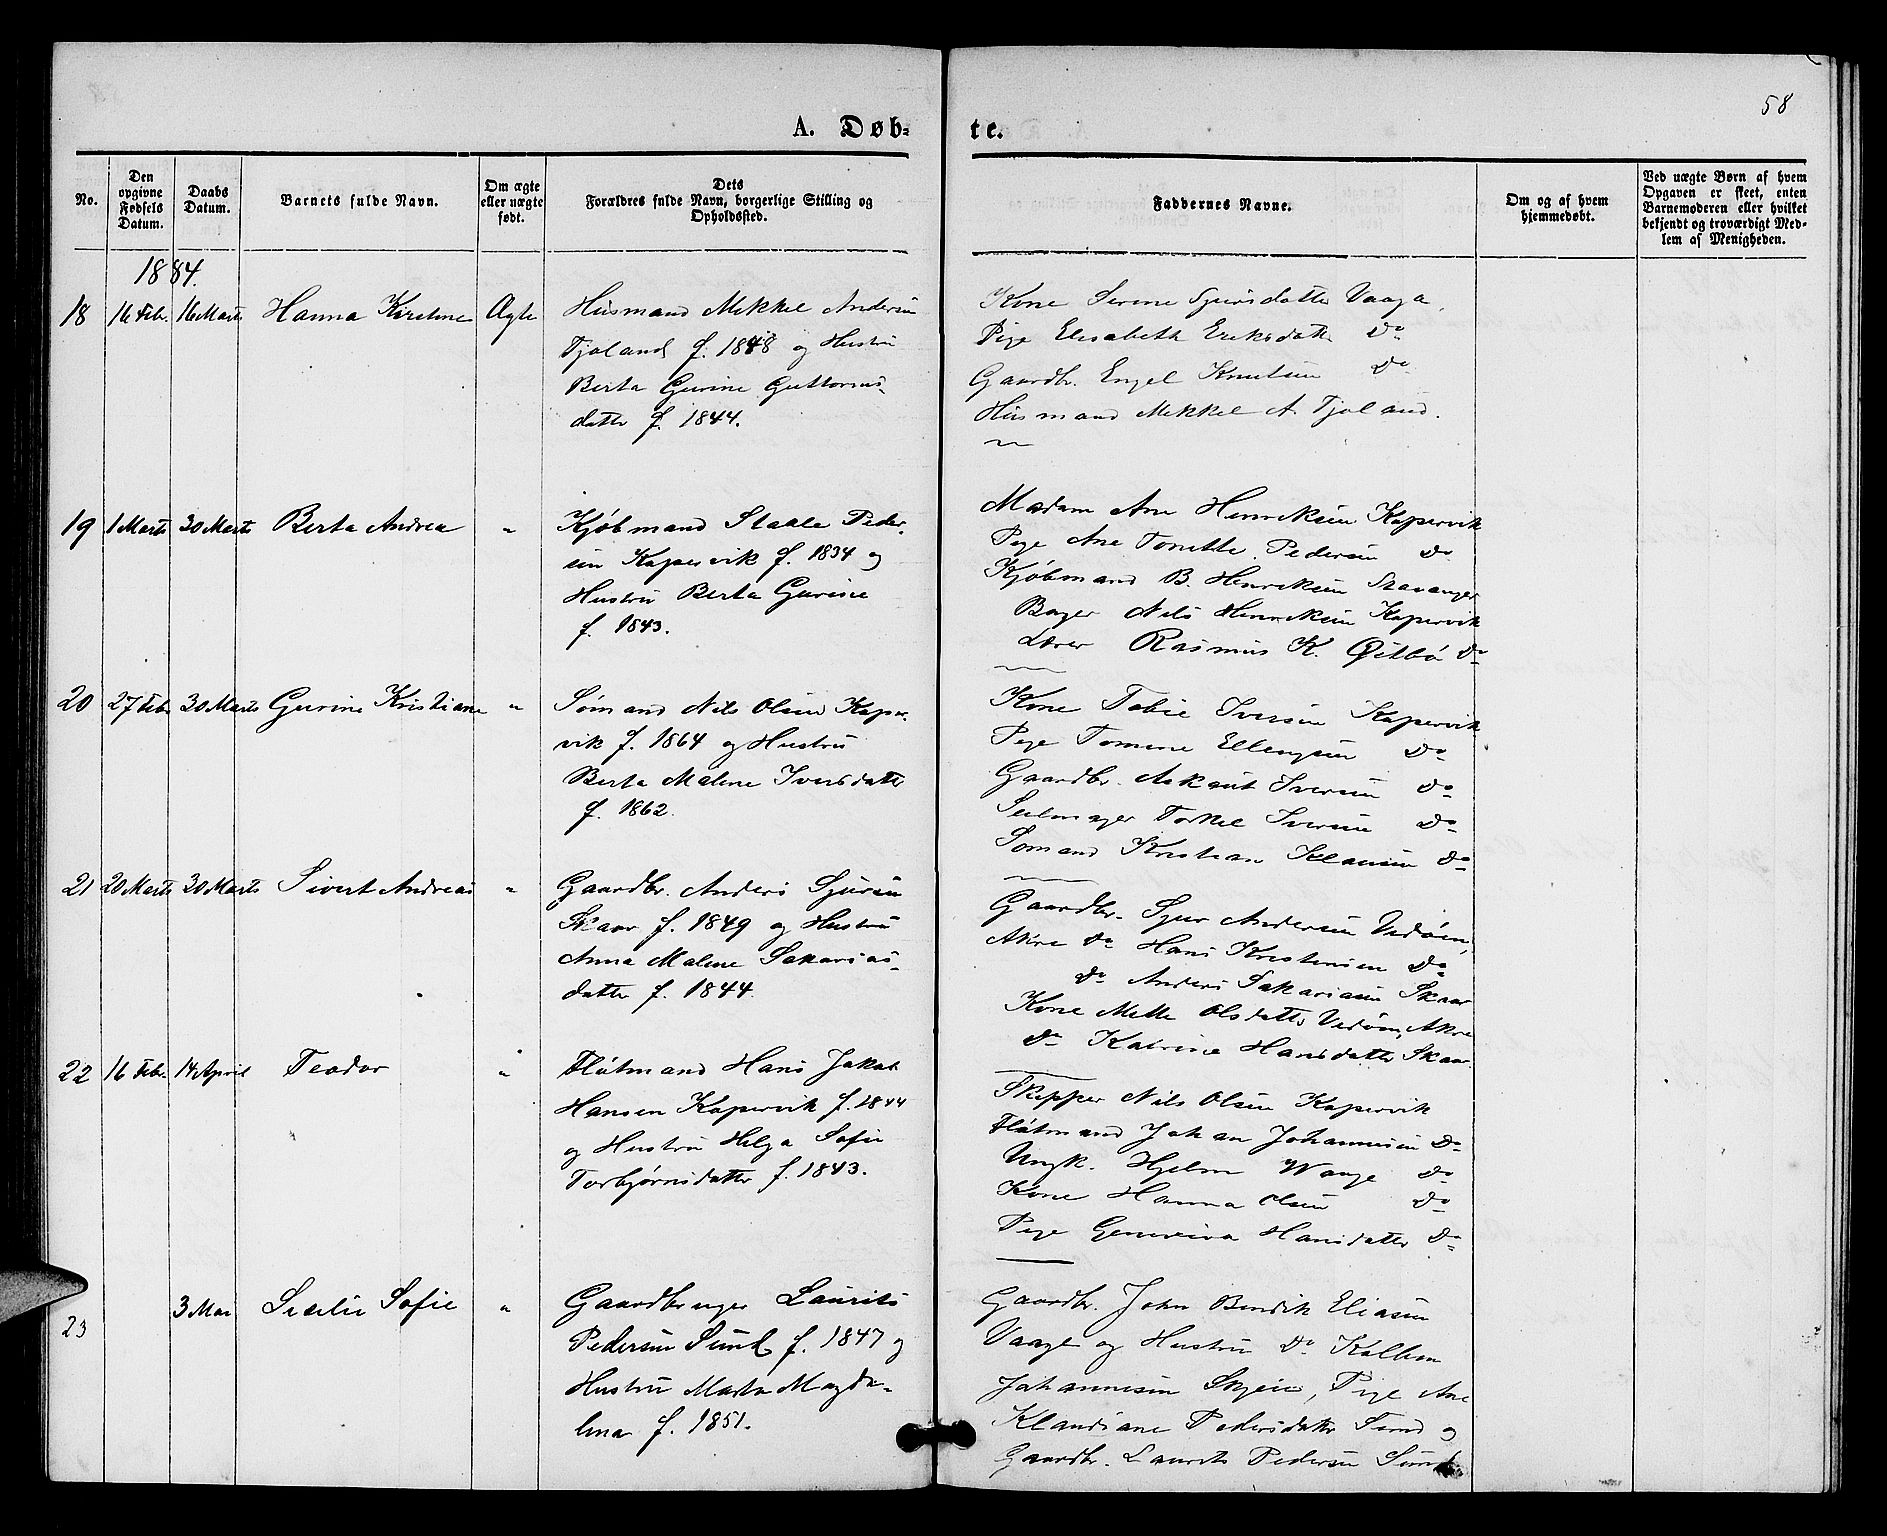 58
A. Døb-
te.
No.
Den
opgivne
Fødsels
Datum.
Daabs
Datum.
Barnets fulde Navn.
Om ægte
eller uægte
født.
Dets
Forældres fulde Navn, borgerlige Stilling og
Opholdssted.
Faddernes Navne.
Om og af hvem
hjemmedøbt.
Ved uægte Børn af hvem
Opgaven er skeet, enten
Barnemoderen eller hvilket
bekjendt og troværdigt Med-
lem af Menigheden.
1884.
18 16 Febr. 16 Marts Hanna Kirstine Ægte
Husmand Mikkel Andersen
Tjoland f. 1848 og Hustru
Berta Gurine Guttorms-
datter f. 1844.
Kone Serine Sjursdatter Vaaga,
Pige Elisabeth Eriksdatter Do
Gaardbr. Engel Knutsen Do
Husmand Mikkel A. Tjoland.
19 1 Marts 30 Marts Berta Andrea "
Kjøbmand Staale Peder-
sen Kopervik f. 1834 og
Hustru Berta Gurine
f. 1843.
Madam Ane Henriksen Kopervik
Pige Ane Tonette Pedersen Do
Kjøbmand B. Henriksen Stavanger
Bager Nils Henriksen Kopervik
Lærer Rasmus K. Do
20 27 Febr. 30 Marts Gurine Kristiane "
Sømand Nils Olsen Koper-
vik f. 1864 og Hustru
Berta Malene Iversdatter
f. 1862.
Kone Tobie Iversen Kopervik
Pige Tomine Ellengsen Do
Gaardbr. Askaut Iversen Do
Seilmager Torkel Iversen Do
Sømand Kristian Klausen Do
21 20 Marts 30 Marts Sivert Andreas "
Gaardbr. Anders Sjursen
Skaar f. 1849 og Hustru
Anna Malene Sakarias-
datter f. 1844.
Gaardbr. Sjur Andersen Vedøen,
Akre Do Hans Kristensen Do
Do Anders Sakariasen Skaar
Kone Mette Olsdatter Vedøen, Akre
Do Katrine Hansdatter Skaar
22 16 Febr. 14 April Teodor "
Flåtmand Hans Jakob
Hansen Kopervik f. 1844
og Hustru Helga Sofie
Torbjørnsdatter f. 1843.
Skipper Nils Olsen Kopervik
Flåtmand Johan Johannesen Do
Ungk. Hjelm Waage Do
Kone Hanna Olsen Do
Pige Hansdatter Do
23 3 Mai Secilie Sofie "
Gaardbruger Laurits
Pedersen Sund f. 1847 og
Hustru Marta Magda-
lena f. 1851.
Gaardbr. John Bendik Eliasen
Vaage og Hustru Do Kolben
Johannesen Skeie, Pige Ane
Klaudiane Pedersdatter Sund og
Gaardbr. Laurits Pedersen Sund